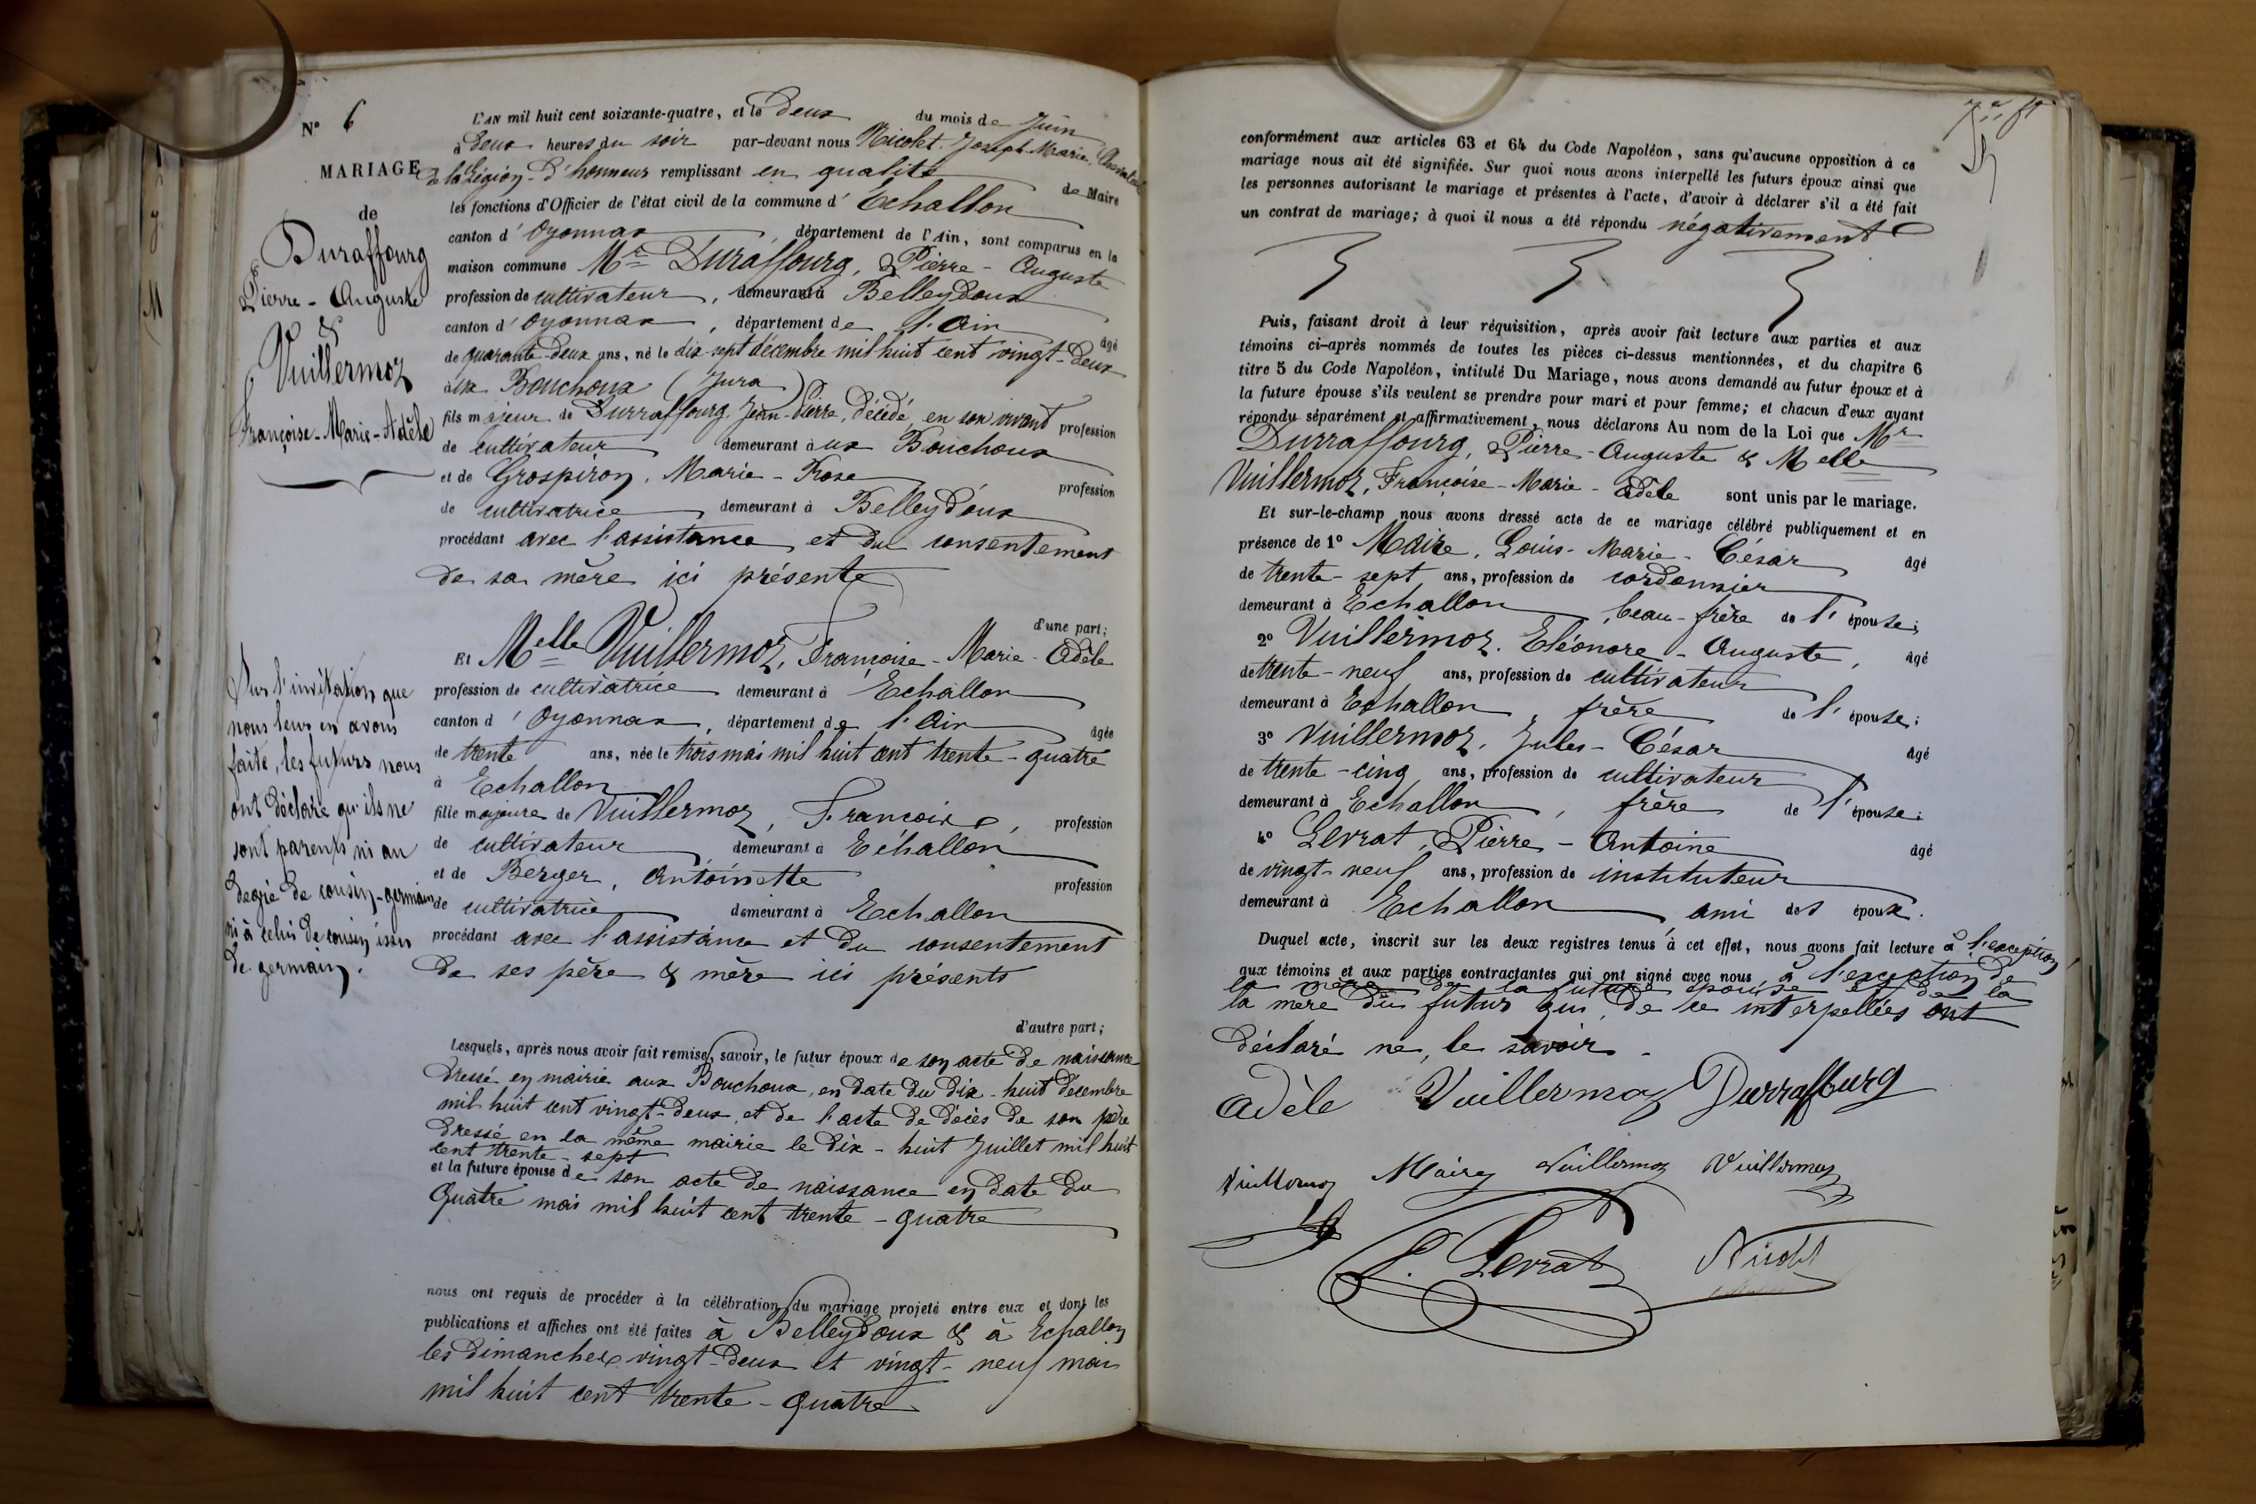 N° 6
MARIAGE
de
Duraffourg
Pierre - Auguste
&
Vuillermoz
Françoise - Marie - Adèle
L'AN mil huit cent soixante-quatre, et le deux du mois de Juin
à deux heures du soir par-devant nous Nicolet Joseph-Marie, Chevalier
de la Légion-d'honneur remplissant en qualité de Maire
les fonctions d'Officier de l'état civil de la commune d'Échallon
canton d'Oyonnax, département de l'Ain, sont comparus en la
maison commune Mr Duraffourg, Pierre - Auguste
profession de cultivateur, demeurant à Belleydoux
canton d'Oyonnax, département de l'Ain âgé
de quarante-deux ans, né le dix-sept décembre mil huit cent vingt-deux
aux Bouchoux (Jura)
fils majeur de Durraffourg Jean-Pierre, décédé, en son vivant profession
de cultivateur demeurant aux Bouchoux
et de Grospiron, Marie - Rose profession
de cultivatrice demeurant à Belleydoux
procédant avec l'assistance et du consentement
de sa mère ici présente
d'une part;
Et Melle Vuillermoz, Françoise - Marie - Adèle
profession de cultivatrice demeurant à Échallon
canton d'Oyonnax, département de l'Ain âgée
de trente ans, née le trois mai mil huit cent trente-quatre
à Echallon
fille majeure de Vuillermoz, François, profession
de cultivateur demeurant à Échallon
et de Berger, Antoinette profession
de cultivatrice demeurant à Échallon
procédant avec l'assistance et du consentement
de ses père & mère ici présents
d'autre part;
Sur l'invitation que
nous leur en avons
faite, les futurs nous
ont déclaré qu'ils ne
sont parents ni au
degré de cousin-germain
ni à celui de cousin issu
de germain.
Lesquels, après nous avoir fait remise, savoir, le futur époux de son acte de naissance
dressé en mairie aux Bouchoux, en date du dix-huit décembre
mil huit cent vingt-deux et de l'acte de décès de son père
dressé en la même mairie le dix-huit Juillet mil huit
cent trente-sept
et la future épouse de son acte de naissance en date du
quatre mai mil huit cent trente-quatre
nous ont requis de procéder à la célébration du mariage projeté entre eux et dont les
publications et affiches ont été faites à Belleydoux & à Echallon
les dimanches vingt-deux et vingt-neuf mai
mil huit cent trente-quatre
conformément aux articles 63 et 64 du Code Napoléon, sans qu'aucune opposition à ce
mariage nous ait été signifiée. Sur quoi nous avons interpellé les futurs époux ainsi que
les personnes autorisant le mariage et présentes à l'acte, d'avoir à déclarer s'il a été fait
un contrat de mariage; à quoi il nous a été répondu négativement
Puis, faisant droit à leur réquisition, après avoir fait lecture aux parties et aux
témoins ci-après nommés de toutes les pièces ci-dessus mentionnées, et du chapitre 6
titre 5 du Code Napoléon, intitulé Du Mariage, nous avons demandé au futur époux et à
la future épouse s'ils veulent se prendre pour mari et pour femme; et chacun d'eux ayant
répondu séparément et affirmativement, nous déclarons Au nom de la Loi que Mr
Durraffourg, Pierre - Auguste & Melle
Vuillermoz, Françoise - Marie - Adèle sont unis par le mariage.
Et sur-le-champ nous avons dressé acte de ce mariage célébré publiquement et en
présence de 1° Maire, Louis - Marie - César âgé
de trente-sept ans, profession de cordonnier
demeurant à Echallon, beau-frère de l'épouse;
2° Vuillermoz, Eléonore - Auguste, âgé
de trente-neuf ans, profession de cultivateur
demeurant à Echallon, frère de l'épouse;
3° Vuillermoz, Jules - César âgé
de trente-cinq ans, profession de cultivateur
demeurant à Echallon, frère de l'épouse;
4° Levrat, Pierre - Antoine âgé
de vingt-neuf ans, profession de instituteur
demeurant à Echallon ami des époux.
Duquel acte, inscrit sur les deux registres tenus à cet effet, nous avons fait lecture à l'exception
aux témoins et aux parties contractantes qui ont signé avec nous à l'exception de
la mère de la future épouse et de la
la mère du futur qui, de ce interpellées ont
déclaré ne le savoir.
Adèle Vuillermoz Durraffourg
Vuillermoz Maire Vuillermoz Vuillermoz
P. Levrat Nicolet